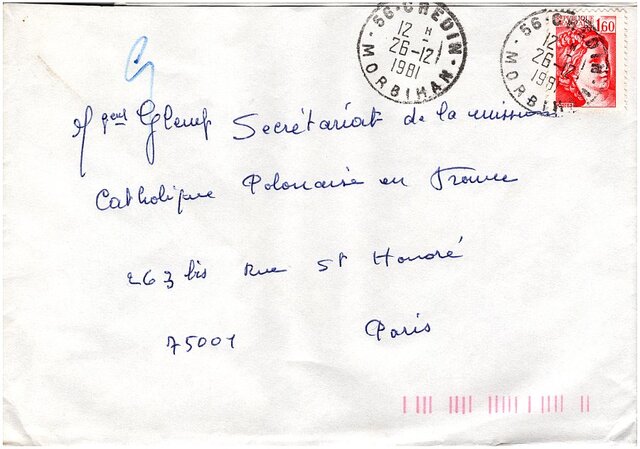 56-CREDIN
12 H
26-12
1981
MORBIHAN
56-CREDIN
12 H
26-12
1981
MORBIHAN
1,60
Mgneur Glemp Secrétariat de la mission
Catholique Polonaise en France
263 bis Rue St Honoré
75001 Paris